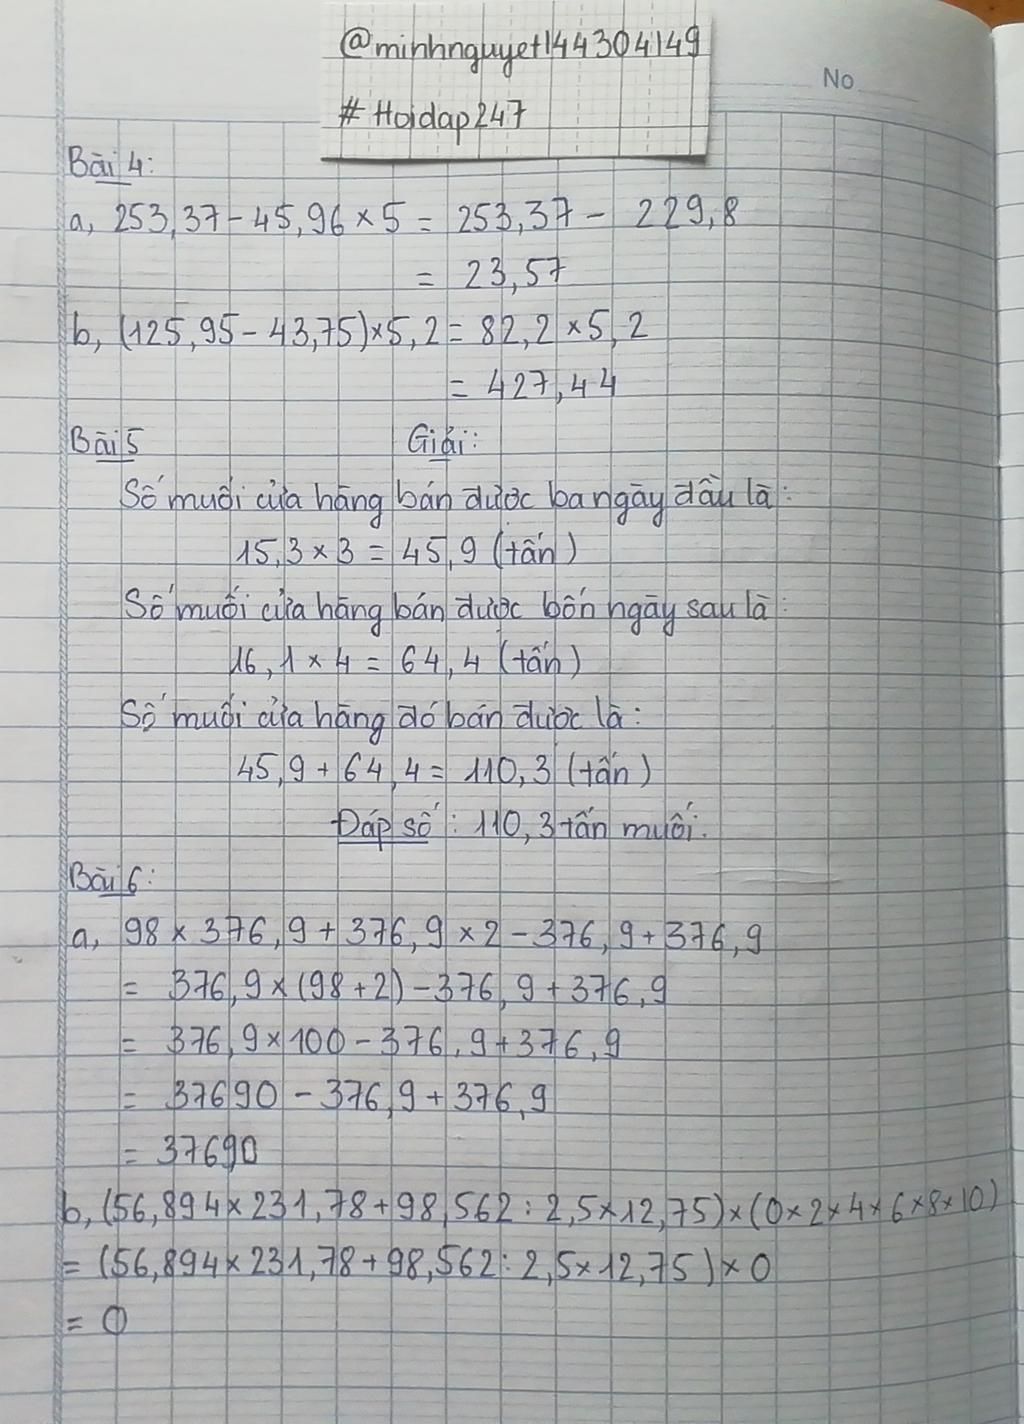 @minhnguyet144304149
#Hoidap247
No
Bài 4:
a, 253,37 - 45,96 × 5 = 253,37 - 229,8
= 23,57
b, (125,95 - 43,75) × 5,2 = 82,2 × 5,2
= 427,44
Bài 5
Giải:
Số muối cửa hàng bán được ba ngày đầu là:
15,3 × 3 = 45,9 (tấn)
Số muối cửa hàng bán được bốn ngày sau là:
16,1 × 4 = 64,4 (tấn)
Số muối cửa hàng đó bán được là:
45,9 + 64,4 = 110,3 (tấn)
Đáp số: 110,3 tấn muối.
Bài 6:
a, 98 × 376,9 + 376,9 × 2 - 376,9 + 376,9
= 376,9 × (98 + 2) - 376,9 + 376,9
= 376,9 × 100 - 376,9 + 376,9
= 37690 - 376,9 + 376,9
= 37690
b, (56,894 × 231,78 + 98,562 : 2,5 × 12,75) × (0 × 2 × 4 × 6 × 8 × 10)
= (56,894 × 231,78 + 98,562 : 2,5 × 12,75) × 0
= 0